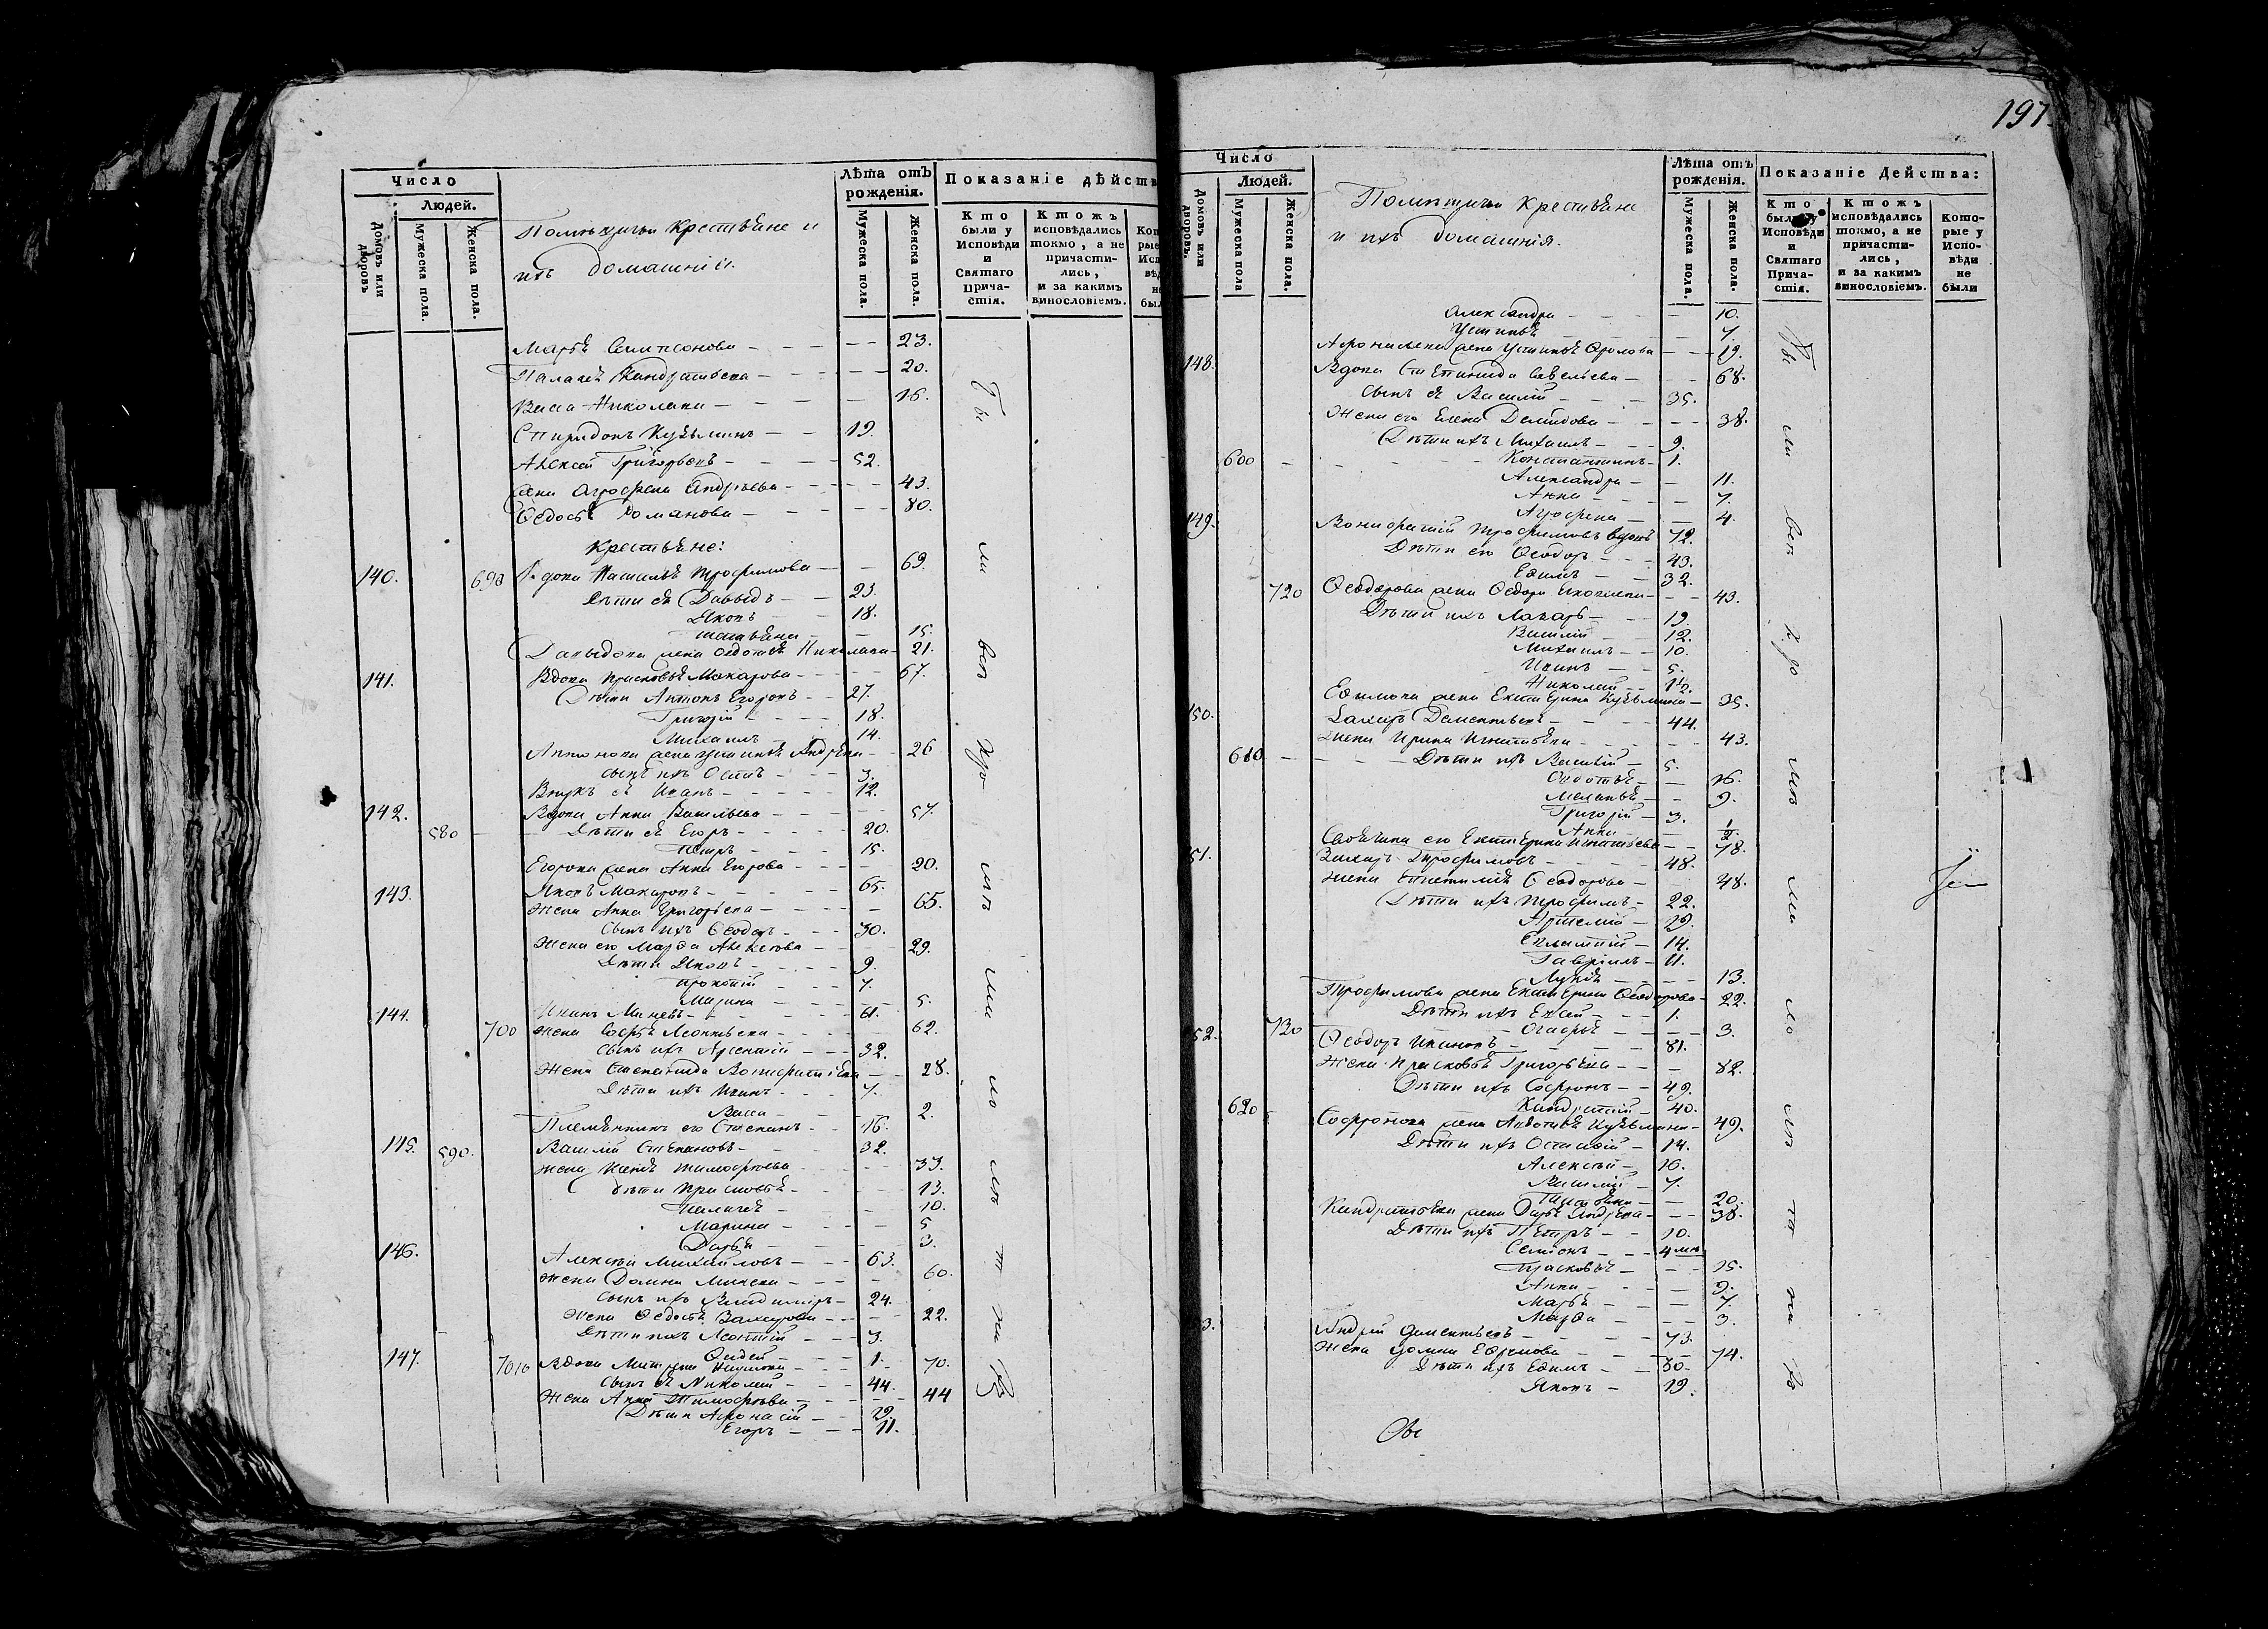 197.
Число
Людей.
Домовъ или дворовъ
Мужеска пола.
Женска пола.
Помѣщичьи крестьяне и
ихъ домашніи.
Лѣта отъ рожденія.
Мужеска пола.
Женска пола.
Показаніе дѣйств
Кто были у Исповѣди и Святаго Прича-стія.
Ктожъ исповѣдались токмо, а не причасти-лись, и за какимъ винословіемъ.
Марья Сампсонова — 23.
Палагея Кандратьева — 20.
Васса Николаева — 16.
Спиридонъ Кузьминъ — 19.
Алексей Григорьевъ — 52.
жена Агрофена Андреева — 43.
Ѳедосья Романова — 80.
Крестьяне:
140. 690 Вдова Наталья Трофимова — 69.
Дѣти ея Давыдъ — 23.
Яковъ — 18.
Татьяна — 15.
Давыдова жена Ѳедотья Николаева — 21.
141. Вдова Прасковья Макарова — 67.
Дѣти Антонъ Егоровъ — 27.
Григорій — 18.
Михаилъ — 14.
Антонова жена Устинья Андреева — 26
сынъ ихъ — 3.
Внукъ ея Иванъ — 12.
142. Вдова Анна Васильева — 57.
580 Дѣти ея Егоръ — 20.
Петръ — 15.
Егорова жена Анна Егорова — 20.
143. Яковъ Макаровъ — 65.
Жена Анна Григорьева — 65.
Сынъ ихъ Ѳеодоръ — 30.
Жена его Марѳа Алексеева — 29.
Дѣти Яковъ — 9.
Прокопій — 7.
Марина — 5.
144. Иванъ — 61.
700 Жена Софья Леонтьева — 62.
Сынъ ихъ Арсентій — 32.
Жена Степанида Вонифатьева — 28.
Дѣти ихъ Иванъ — 7.
Васса — 2.
Племянникъ его Степанъ — 16.
145. 590. Василій Степановъ — 32.
Жена Тимофеева — 33.
Дѣти Прасковья — 13.
Палагея — 10.
Марина — 5
Дарья — 3.
146. Алексѣй Михайловъ — 63.
Жена Домна — 60.
Сынъ ихъ Владимиръ — 24.
Жена Ѳедосья Захарова — 22.
Дѣти ихъ Леонтій — 3.
— 1.
147. 7010 Вдова — 70.
Сынъ ея Николай — 44.
Жена Анна Тимофеева — 44
Дѣти Афонасій — 22.
Егоръ — 11.
Число
Людей.
Домовъ или дворовъ.
Мужеска пола
Женска пола.
Помѣщичьи крестьяне
и ихъ домашнія.
Лѣта отъ рожденія.
Мужеска пола.
Женска пола.
Показаніе Действа:
Кто были у Исповѣди и Святаго Прича-стія.
Ктожъ исповѣдались токмо, а не причасти-лись, и за какимъ винословіемъ.
Кото-рые у Испо-вѣди не были
Александра — 10.
Устинья — 7.
Афонасьева жена Устинья Фролова — 19.
148. Вдова Степанида Савельева — 68.
сынъ ея Василій — 35.
Жена его Елена Демидова — 38.
Дѣти ихъ Михаилъ — 9.
600 Константинъ — 1.
Александра — 11.
Анна — 7.
Агрофена — 4.
149. Вонифатій Трофимовъ вдовъ 72.
Дѣти его Ѳеодоръ — 43.
Еѳимъ — 32.
720 Ѳеодорова жена — 43.
Дѣти ихъ Лазарь — 19.
Василій — 12.
Михаилъ — 10.
Иванъ — 5.
Николай — 1½.
Еѳимова жена Екатерина Кузьмина — 35.
150. Захаръ Дементьевъ — 44.
Жена Ирина Игнатьева — 43.
610 Дѣти ихъ Василій — 5.
Ѳедотья — 16.
Меланья — 9.
Григорій — 3.
Анна — ½.
Своячина его Екатерина Игнатьева — 78.
51. Захаръ Трофимовъ — 48.
Жена Ѳеодорова — 48.
Дѣти ихъ Трофимъ — 22.
Артемій — 19.
Евлампій — 14.
Гавріилъ — 11.
Лукія — 13.
Трофимова жена Екатерина Ѳеодорова — 22.
Дѣти ихъ — 1.
730 — 3.
52. Ѳеодоръ Ивановъ — 81.
Жена Прасковья Григорьева — 82.
Дѣти ихъ Софронъ — 49.
620 Кандратій — 40.
Софронова жена Авдотья Кузьмина — 49.
Дѣти ихъ — 14.
Алексѣй — 10.
Василій — 7.
Татьяна — 20.
Кандратьева жена Дарья Андреева — 38.
Дѣти ихъ Петръ — 10.
Семіонъ — 4 мѣс
Прасковья — 15.
Анна — 9.
Марья — 7.
Марѳа — 3.
3. Андрей Дементьевъ — 73.
Жена Домна Ефремова — 74.
Дѣти ихъ Еѳимъ — 30.
Яковъ — 19.